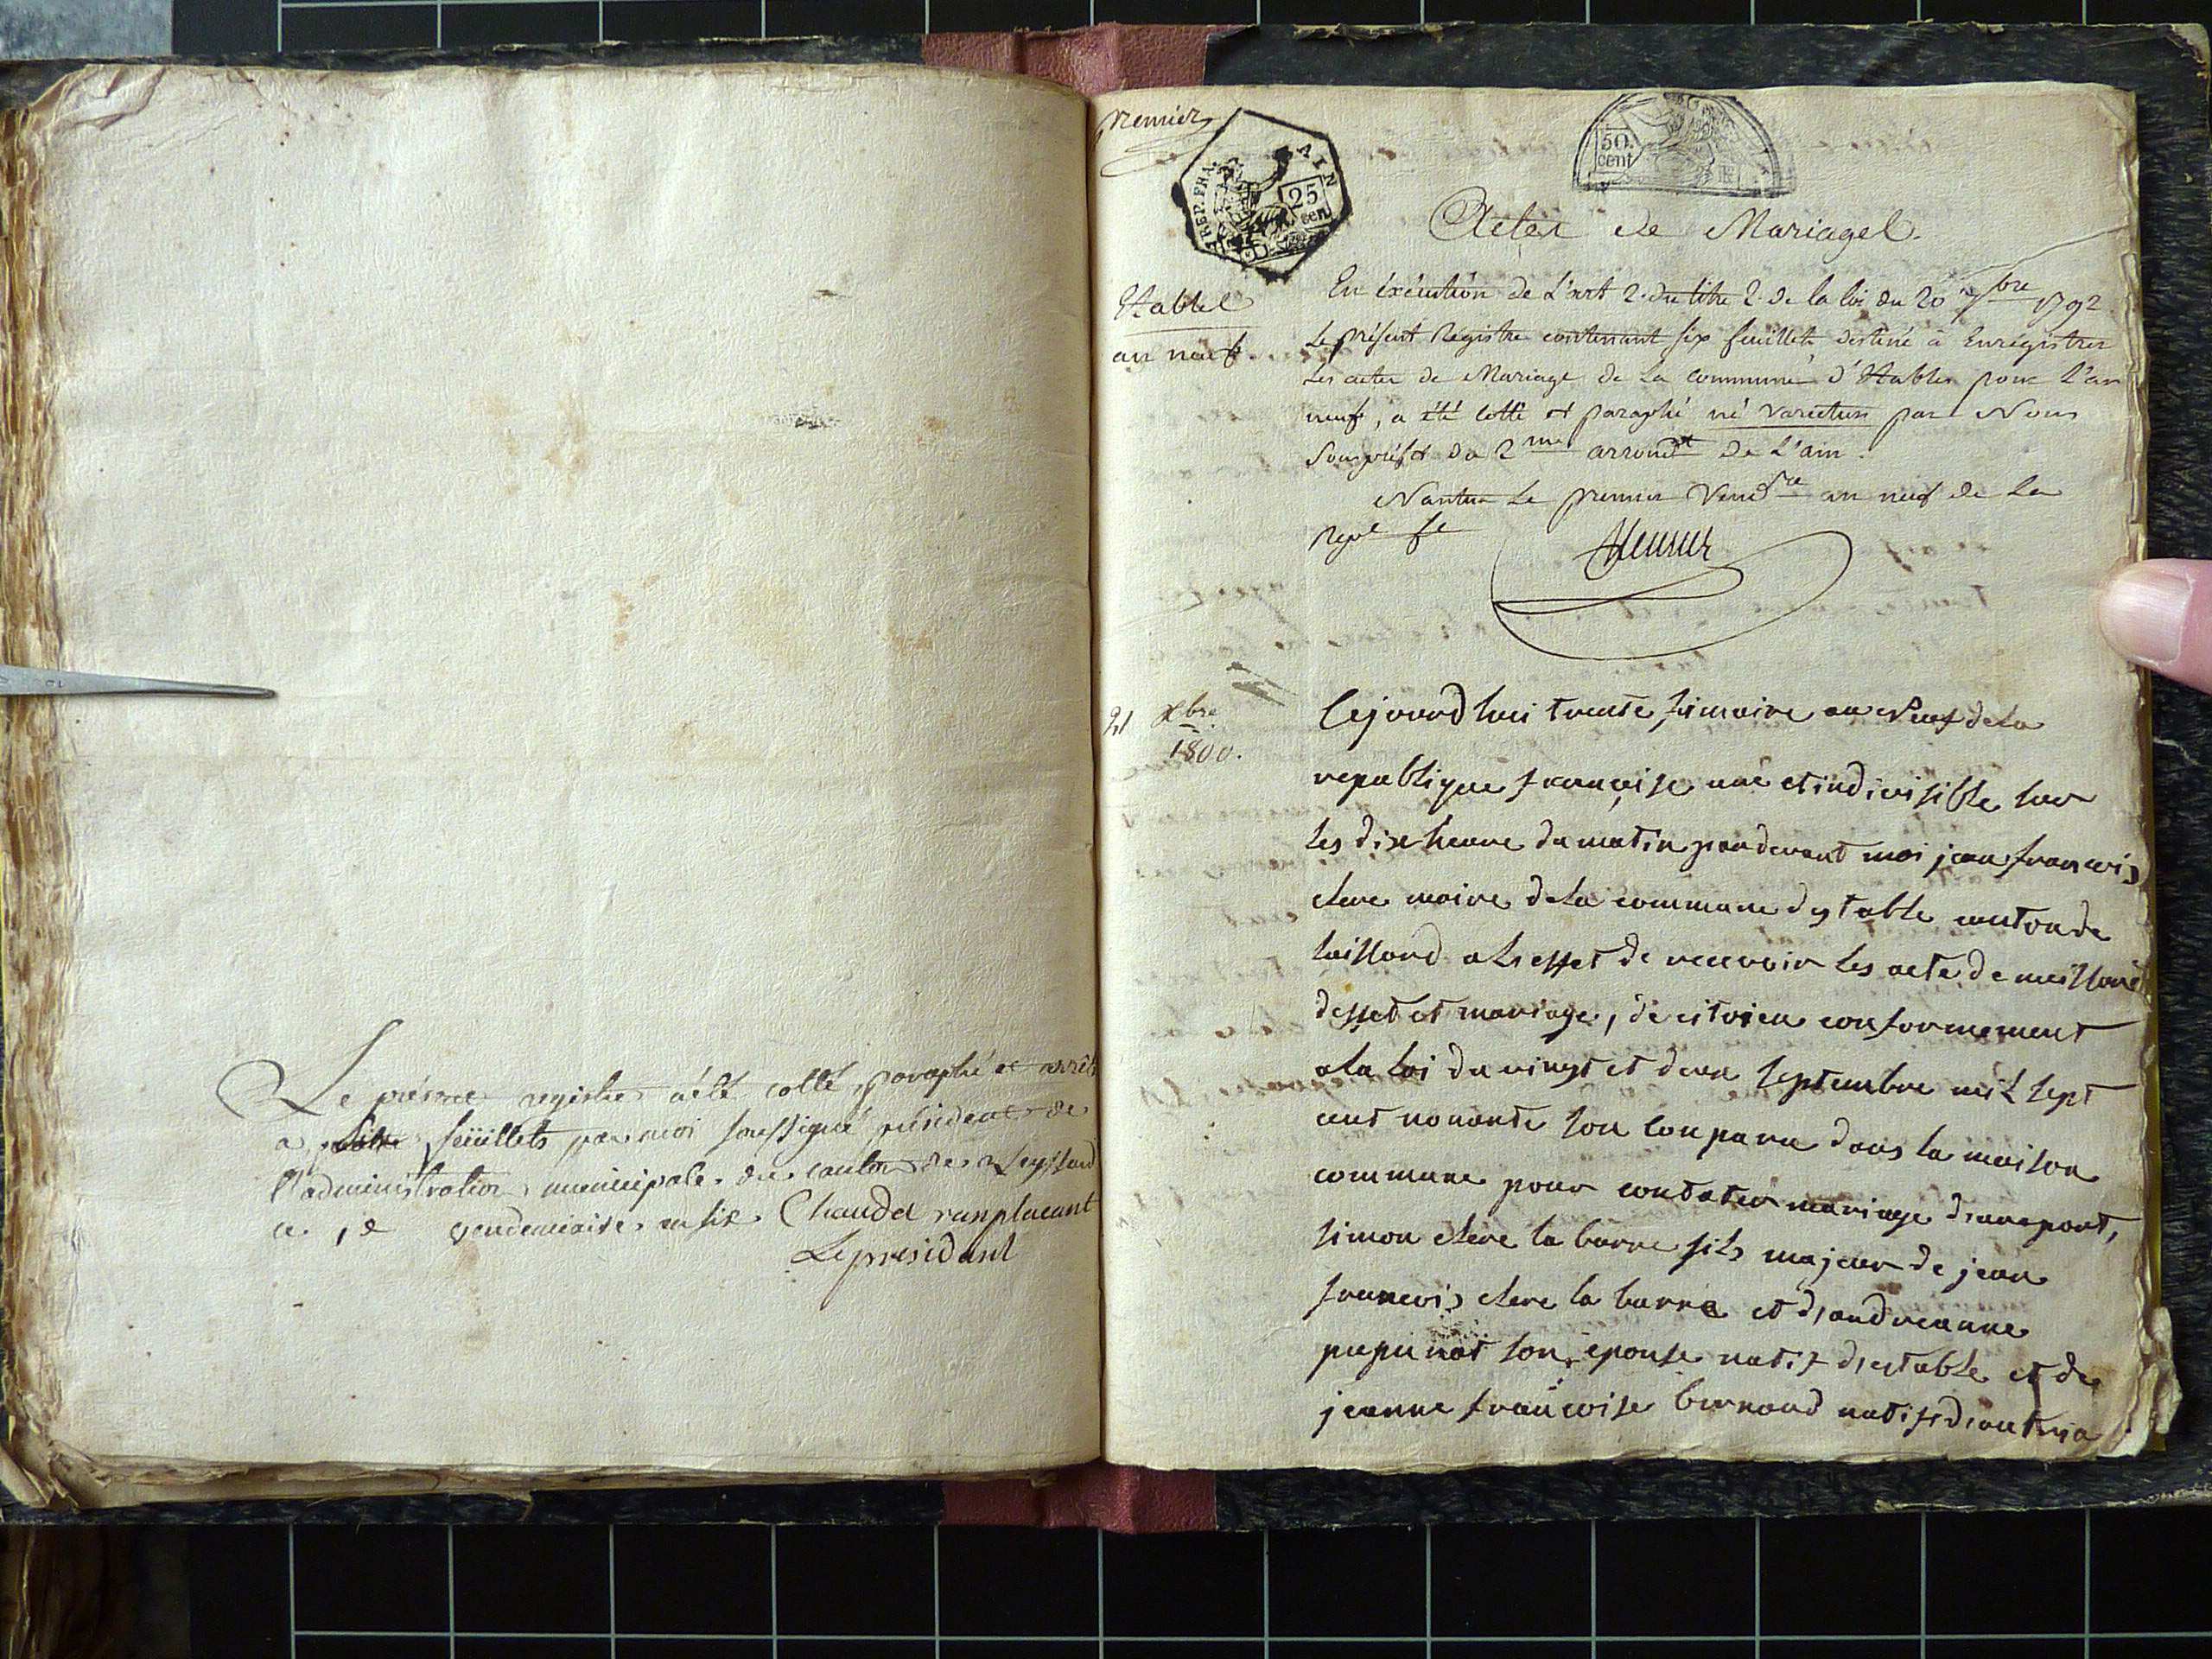 Le présent registre a été cotté, paraphé et arrêté
a feüillets par moi soussigné président de
l'administration municipale du canton de Leyssard
ce 1e vendemiaire an six Chaudet ranplacant
Le president
premier
REP. FRA.
AIN
25
cen
50.
cent
Actes de Mariages.
Etables
an neuf
En éxécution de L'art 2. du titre 2. de la loi du 20 7bre 1792
Le présent Registre contenant six feuillets destiné à Enregistrer
Les actes de Mariage de La commune d'Etables pour L'an
neuf, a été cotté et paraphé né varietur par Nous
Souspréfet du 2me arrondt De L'ain.
Nantua Le premier Vendre an neuf de La
Repe fe
21 Xbre
1800.
Cejourdhui trente frimaire an Neuf de la
republique francoise une et indivisible sur
les dix heure du matin pardevant moi jean francois
clerc maire de la commune destable canton de
laissard a les effet de recevoir les acte de neissance
desset et mariage, de citoien conformement
a la loi du vingt et deux septembre mil sept
cent nonante son conparu dans la maison
commune pour contater mariage d,une part,
simon clerc la barre fils majeur de jean
francois clerc la barre et d,andreanne
pupunat son eponse natif d,estable et de
jeanne francoise bernard natif d,autria